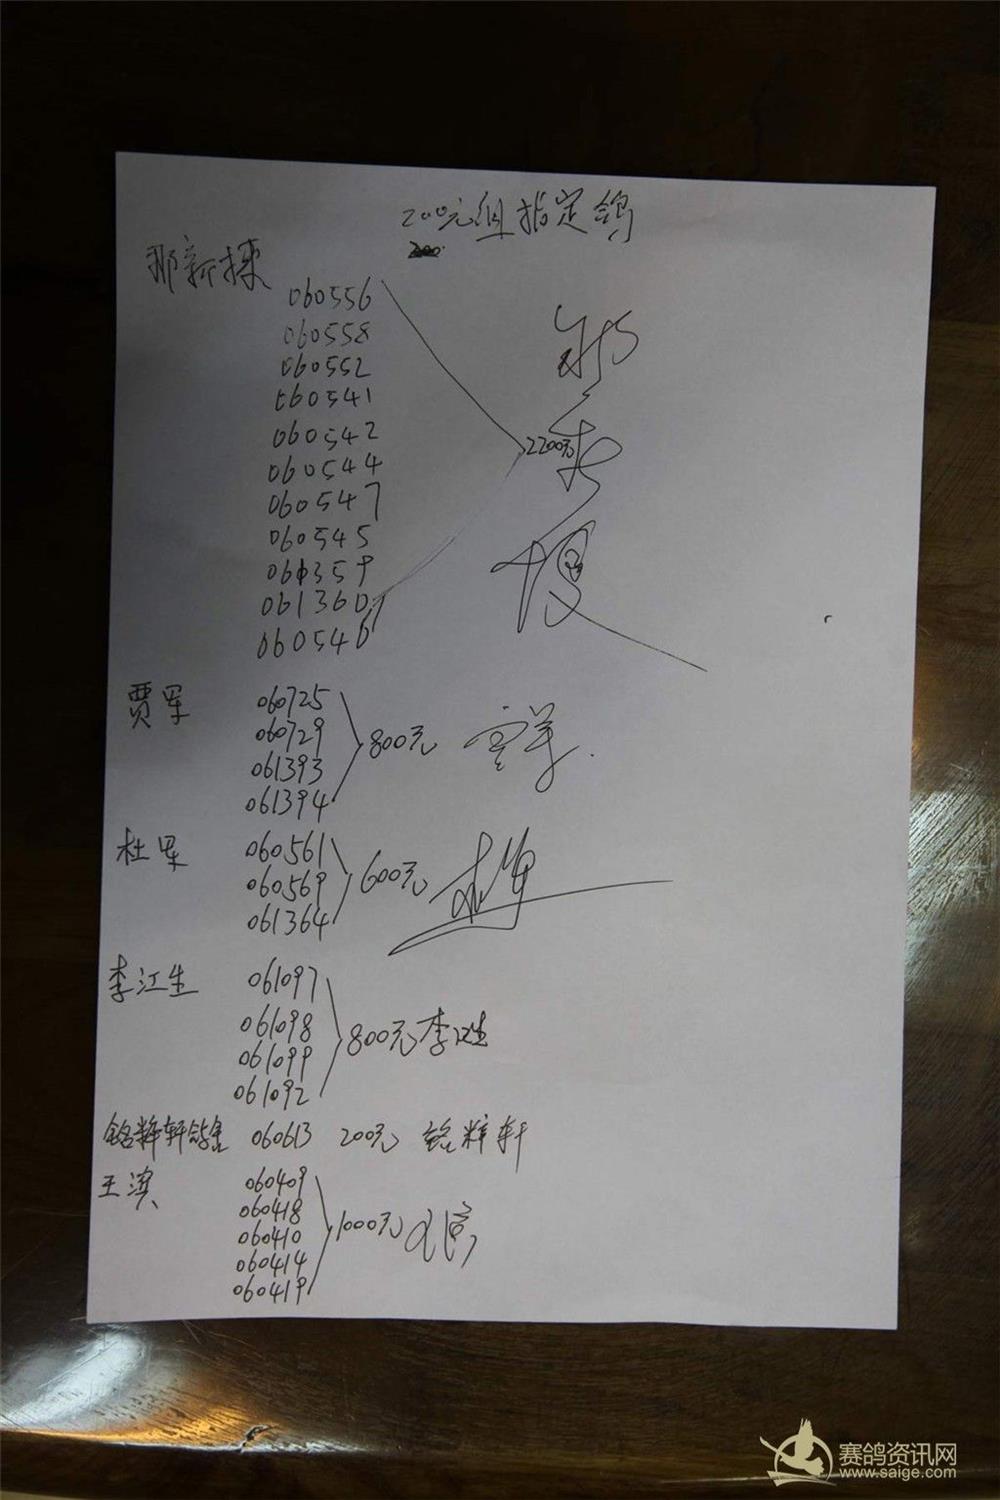 200元组指定鸽
那新振
060556
060558
060552
060541
060542
060544
060547
060545
061359
061360
060546
2200元
贾军
060725
060729
061393
061394
800元
杜军
060561
060569
061364
600元
李江生
061097
061098
061099
061092
800元 李江生
铭粹轩鸽舍 060613 200元 铭粹轩
王滨
060409
060418
060410
060414
060419
1000元 王滨
赛鸽资讯网
www.saige.com